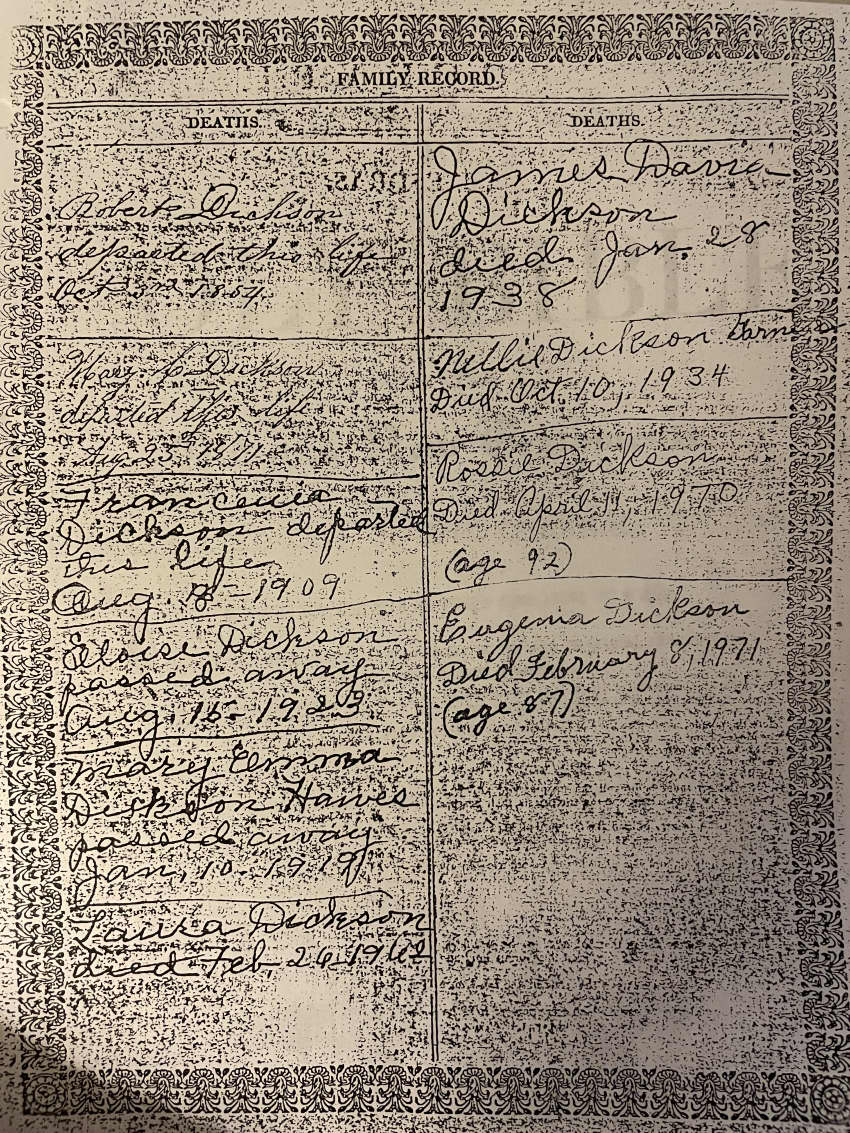 FAMILY RECORD.
DEATHS.
Robert Dickson
departed this life
Oct 3rd
Mary C Dickson
departed this life
Aug 25th 1871.
Dickson departed
this life
Aug 8th 1909
Eloise Dickson
passed away
Aug. 15 - 1923
Mary Emma
Dickson Hawes
passed away
Jan, 10 - 1919
Laura Dickson
died Feb. 26 - 1962
DEATHS.
James David
Dickson
died Jan. 28
1938
Nellie Dickson
Died Oct. 10, 1934
Rossie Dickson
Died April 11, 1970
(age 92)
Eugenia Dickson
Died February 8, 1971
(age 87)